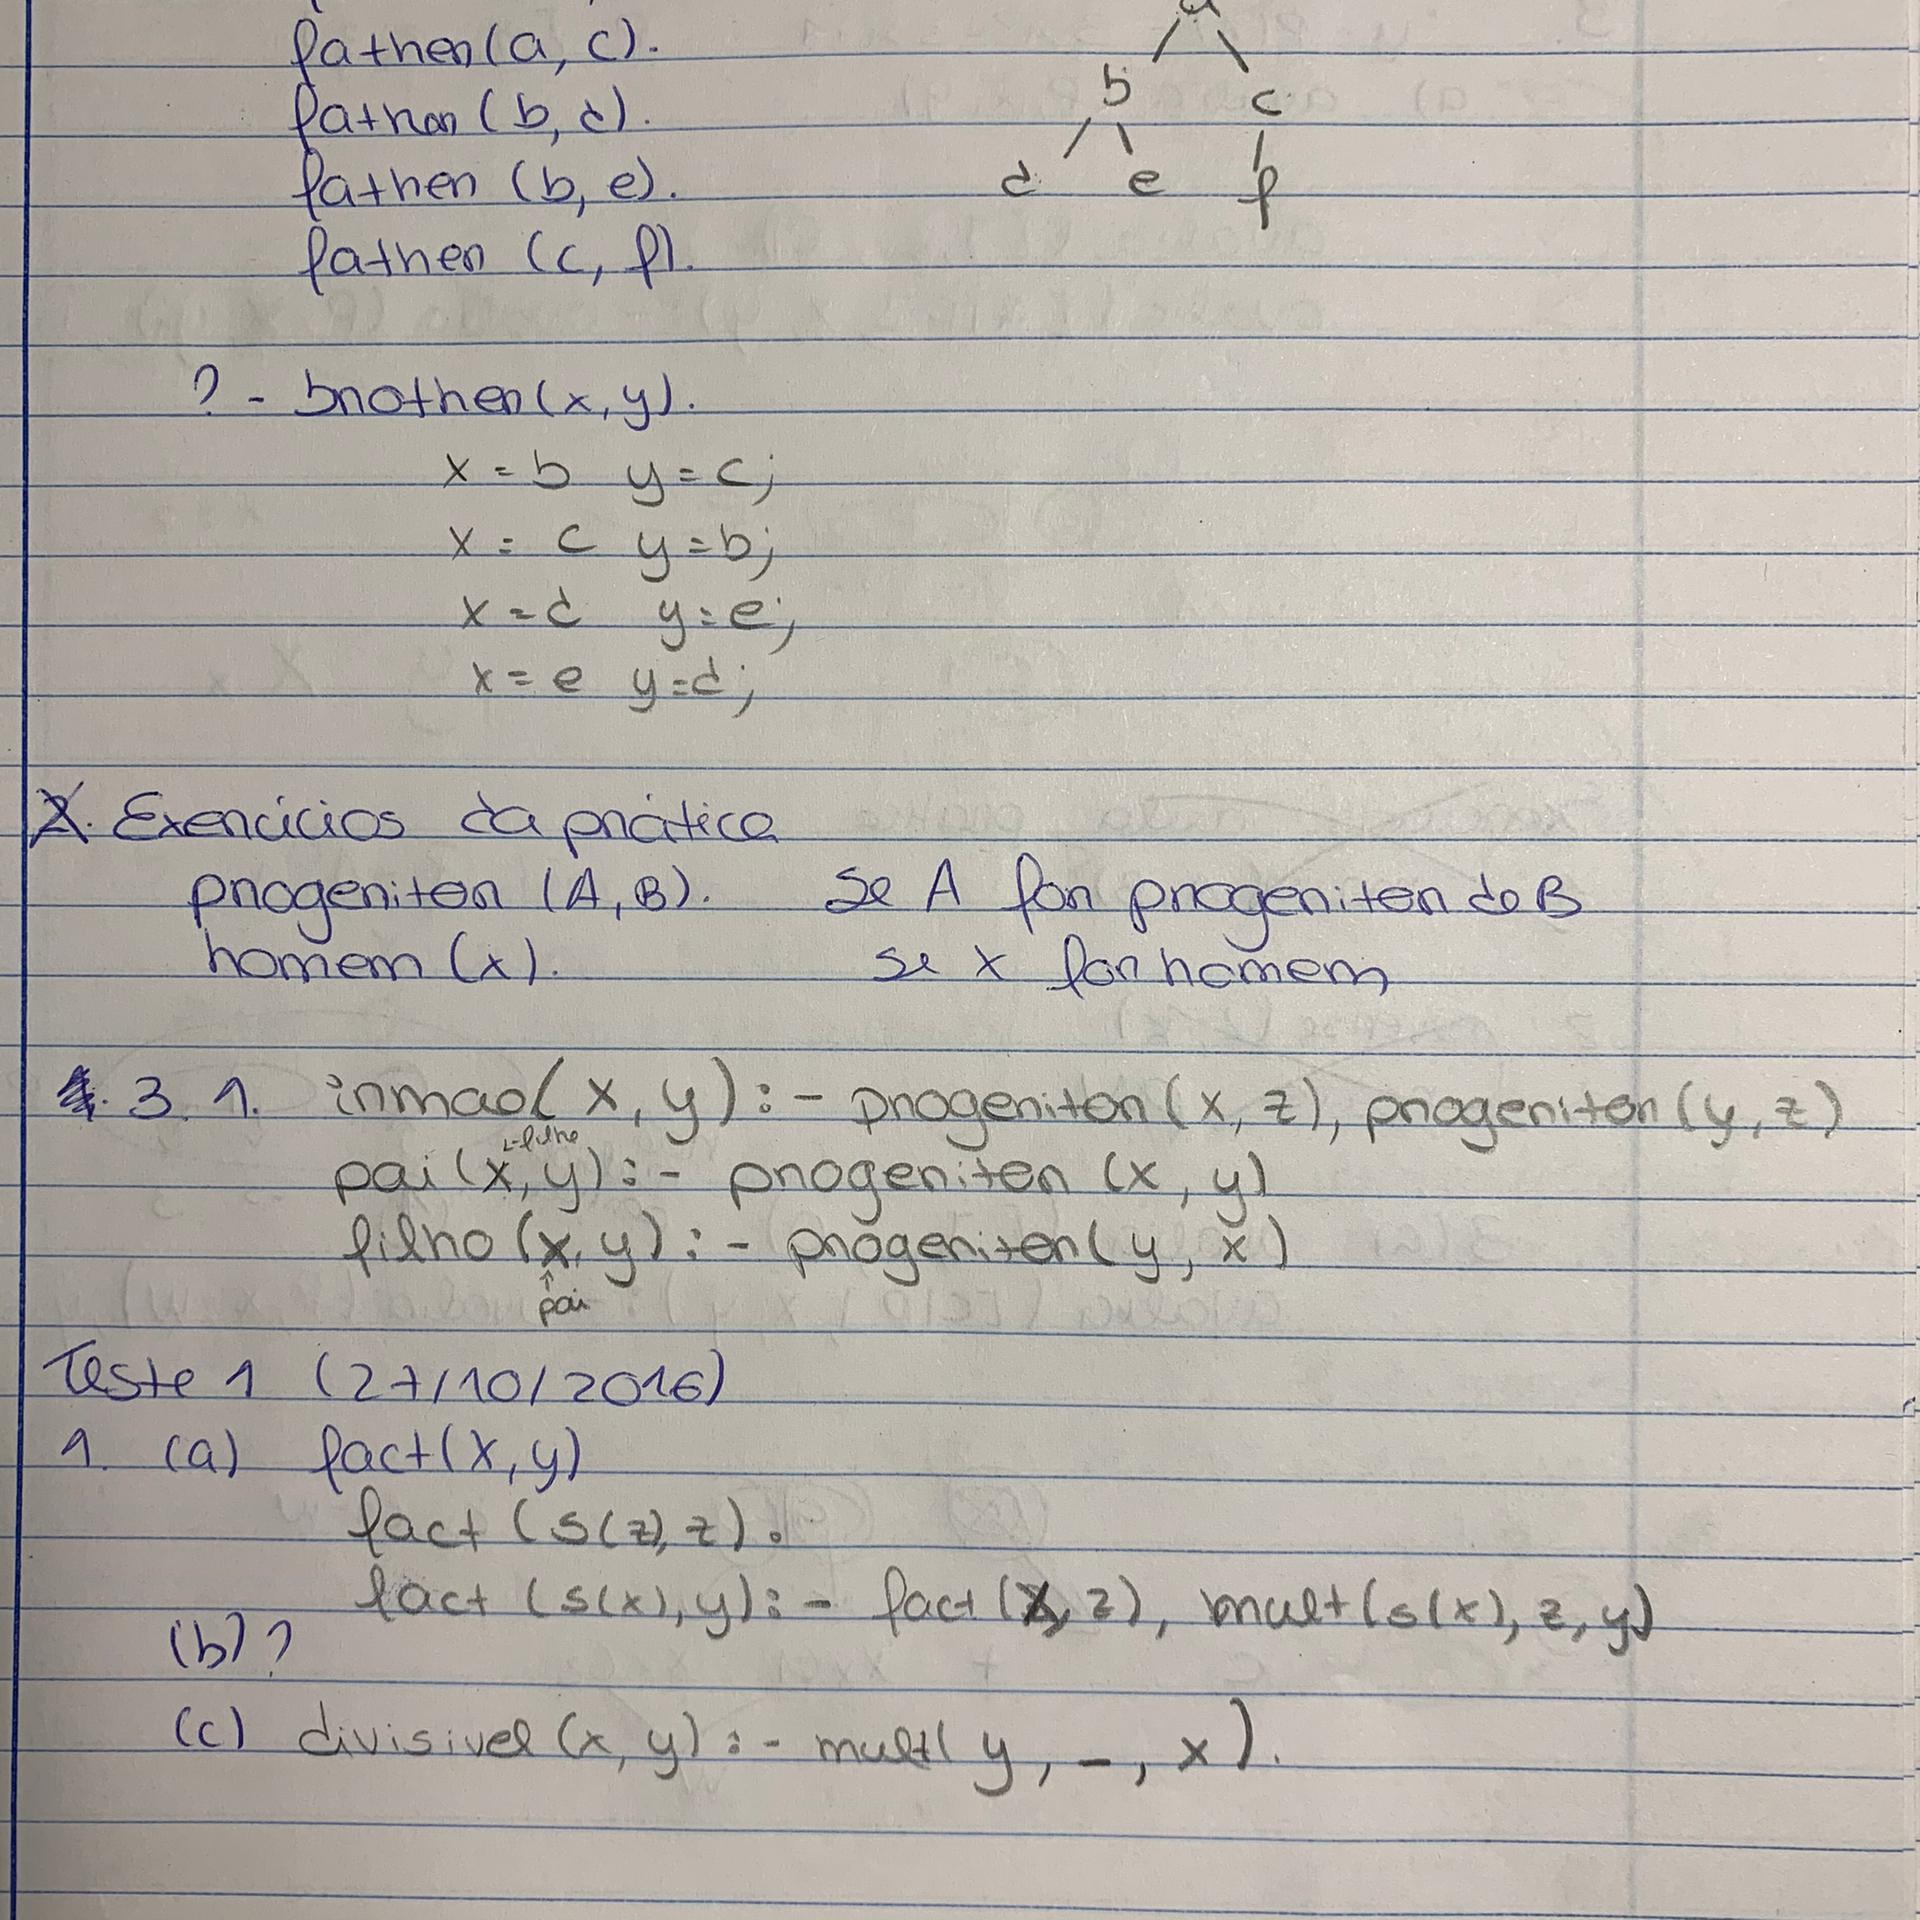 father(a, c).
a
father(b, d).
b c
father (b, e).
d e f
father (c, f).
? - brother(x, y).
x = b y = c;
x = c y = b;
x = d y = e;
x = e y = d;
2. Exercícios da prática
progenitor (A, B). Se A for progenitor de B
homem (x). se x for homem
3. 1. irmao(x, y) :- progenitor(x, z), progenitor(y, z)
filho
pai(x, y) :- progenitor (x, y)
filho (x, y) :- progenitor(y, x)
pai
Teste 1 (27/10/2016)
1. (a) fact(X, y)
fact (s(z), z).
fact (s(x), y) :- fact (X, z), mult(s(x), z, y)
(b) ?
(c) divisivel (x, y) :- mult( y, _, x).